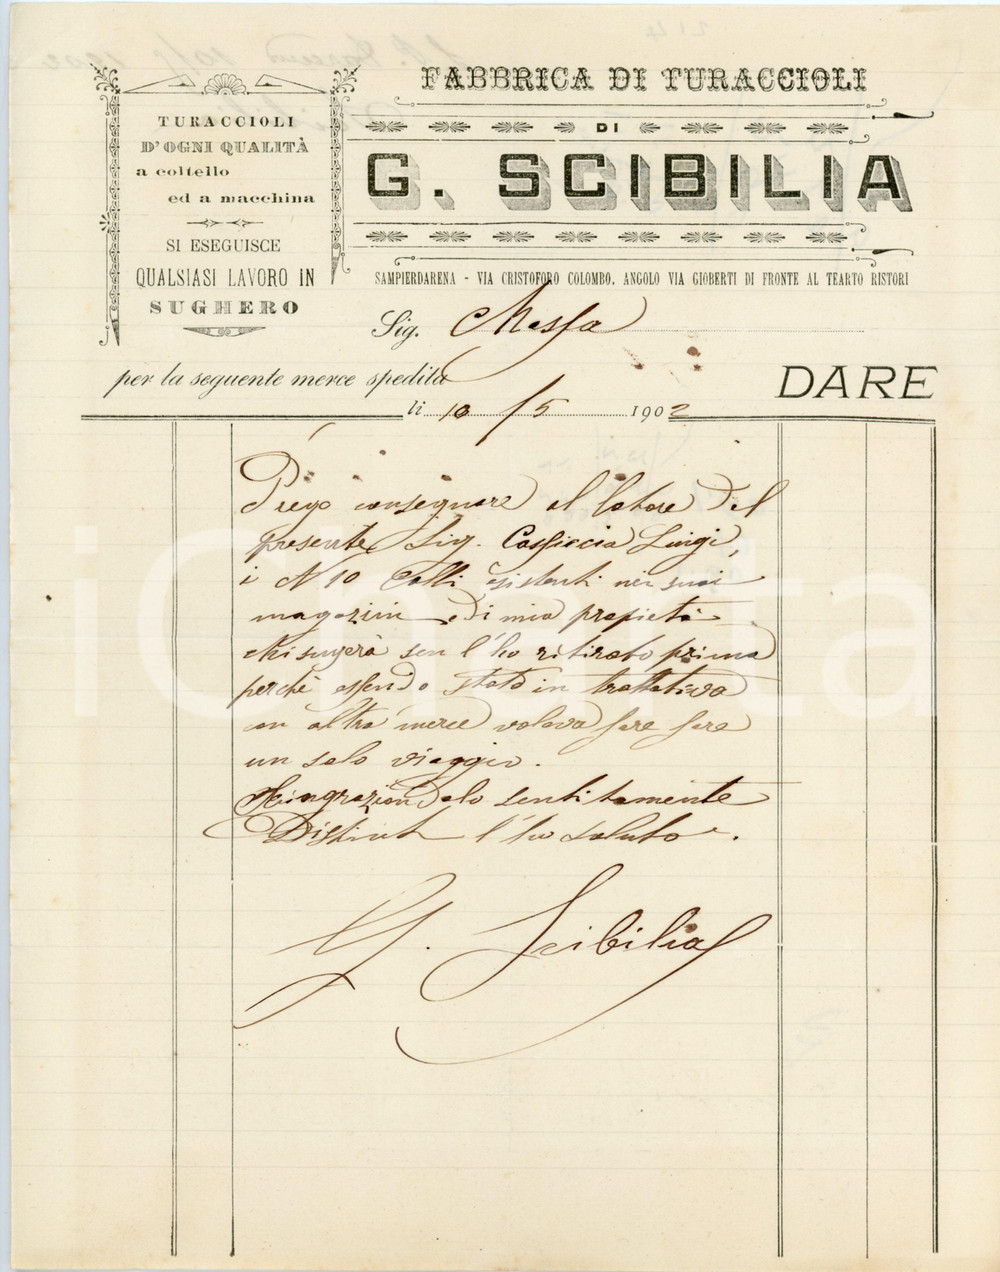 FABBRICA DI TURACCIOLI
DI
G. SCIBILIA
SAMPIERDARENA - VIA CRISTOFORO COLOMBO, ANGOLO VIA GIOBERTI DI FRONTE AL TEARTO RISTORI
TURACCIOLI
D'OGNI QUALITÀ
a coltello
ed a macchina
SI ESEGUISCE
QUALSIASI LAVORO IN
SUGHERO
Sig. Messa
per la seguente merce spedita
DARE
li 10/5 1902
Prego consegnare al latore del
presente Sig. Caspiccia Luigi,
i N 10 Colli esistenti nei suoi
magazini e di mia propietà
non l'ho ritirato prima
perchè essendo stato in trattativa
con altra merce voleva fare fare
un solo viaggio.
Ringraziandolo sentitamente
l'ho saluto.
G. Scibilia
iCharta